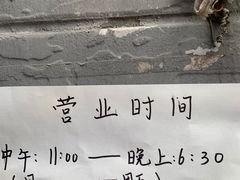 营业时间
中午：11:00 — 晚上：6：30